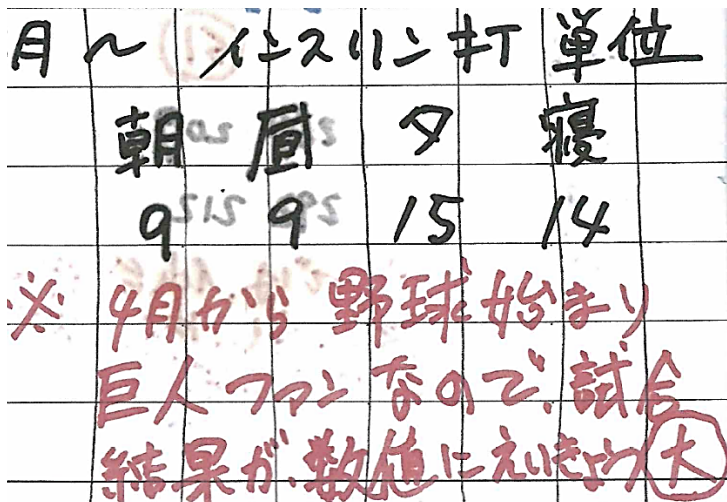 月〜 インスリン打 単位
朝 昼 夕 寝
9 9 15 14
※ 4月から野球始まり
巨人ファンなので、試合
結果が、数値にえいきょう大